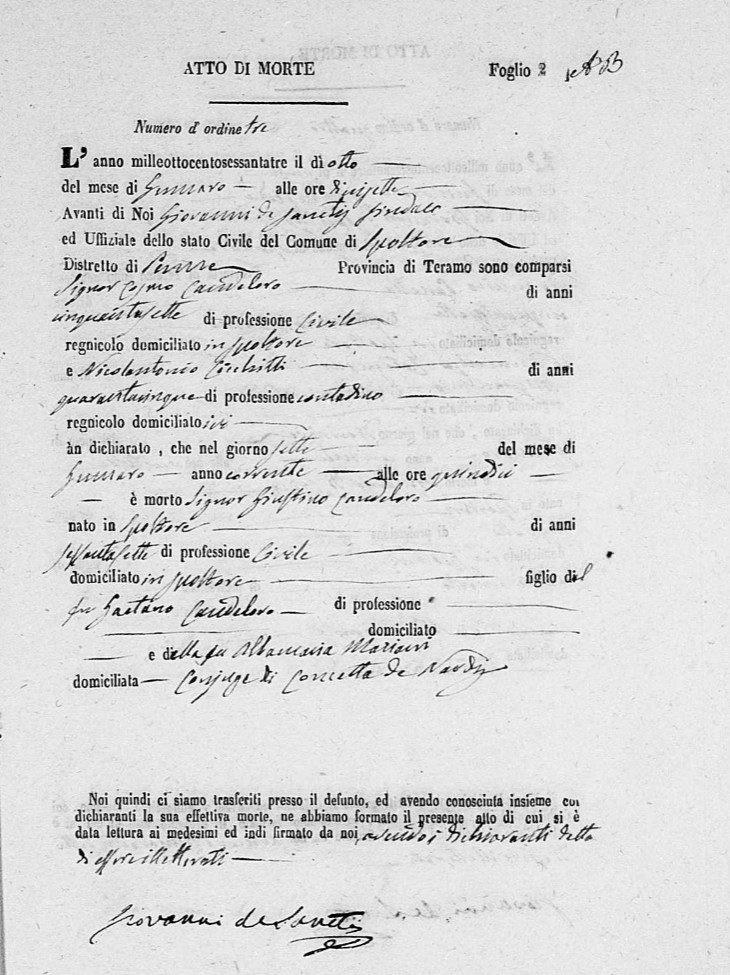 ATTO DI MORTE Foglio 2
Numero d' ordine tre
L' anno milleottocentosessantatre il dì otto
del mese di Gennaro alle ore diecisette
Avanti di Noi Giovanni de Sanctis Sindaco
ed Uffiziale dello stato Civile del Comune di Spoltore
Distretto di Penne Provincia di Teramo sono comparsi
Signor Cosmo Candeloro di anni
cinquantasette di professione Civile
regnicolo domiciliato in Spoltore
e Nicolantonio di anni
quarantacinque di professione contadino
regnicolo domiciliato ivi
àn dichiarato , che nel giorno sette del mese di
Gennaro anno corrente alle ore quindici
è morto Signor Giustino Candeloro
nato in Spoltore di anni
di professione Civile
domiciliato in Spoltore figlio del
fu Gaetano Candeloro di professione
domiciliato
e della fu Albamaria Mariani
domiciliata Conjuge di Concetta de Nardis
Noi quindi ci siamo trasferiti presso il defunto, ed avendo conosciuta insieme coi
dichiaranti la sua effettiva morte, ne abbiamo formato il presente atto di cui si è
data lettura ai medesimi ed indi firmato da noi, avendo i dichiaranti detto
di essere illetterati
Giovanni de Sanctis